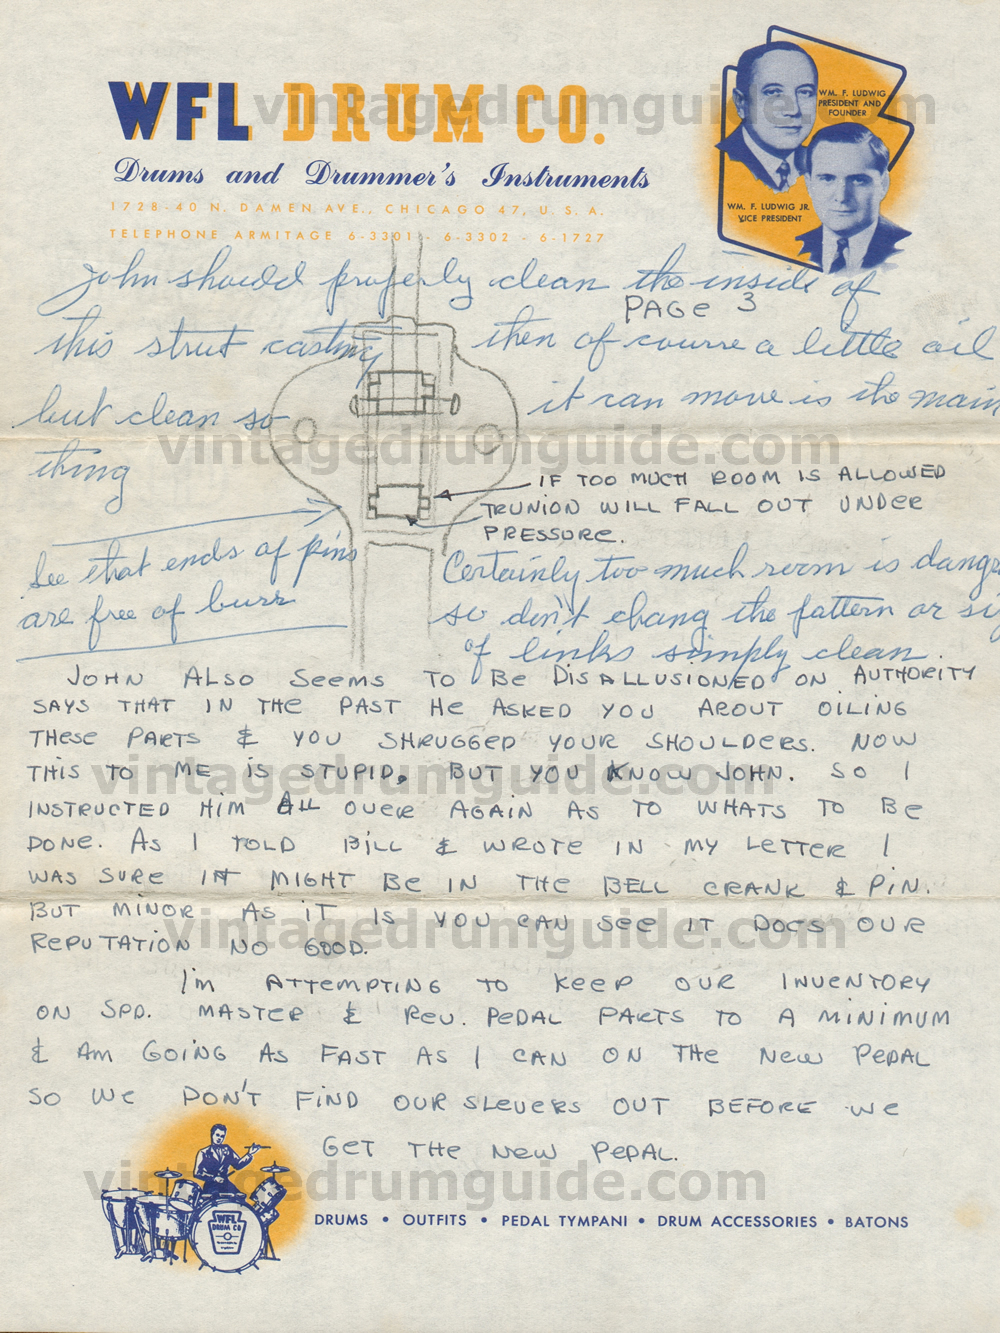 WFL DRUM CO.
Drums and Drummer's Instruments
1728-40 N. DAMEN AVE., CHICAGO 47, U.S.A.
TELEPHONE ARMITAGE 6-3301 - 6-3302 - 6-1727
WM. F. LUDWIG
PRESIDENT AND
FOUNDER
WM. F. LUDWIG JR.
VICE PRESIDENT
vintagedrumguide.com
John should properly clean the inside of
PAGE 3
this strut casting then of course a little oil
but clean so it can move is the main
thing
vintagedrumguide.com
IF TOO MUCH ROOM IS ALLOWED
TRUNION WILL FALL OUT UNDER
PRESSURE.
See that ends of pins
are free of burrs
Certainly too much room is dang
so don't chang the pattern or si
of links simply clean.
JOHN ALSO SEEMS TO BE DISALLUSIONED ON AUTHORITY
SAYS THAT IN THE PAST HE ASKED YOU ABOUT OILING
THESE PARTS & YOU SHRUGGED YOUR SHOULDERS. NOW
THIS TO ME IS STUPID, BUT YOU KNOW JOHN. SO I
vintagedrumguide.com
INSTRUCTED HIM ALL OVER AGAIN AS TO WHATS TO BE
DONE. AS I TOLD BILL & WROTE IN MY LETTER I
WAS SURE IT MIGHT BE IN THE BELL CRANK & PIN.
BUT MINOR AS IT IS YOU CAN SEE IT DOES OUR
vintagedrumguide.com
REPUTATION NO GOOD.
I'M ATTEMPTING TO KEEP OUR INVENTORY
ON SPD. MASTER & REV. PEDAL PARTS TO A MINIMUM
& AM GOING AS FAST AS I CAN ON THE NEW PEDAL
SO WE DON'T FIND OUR SLEVERS OUT BEFORE WE
GET THE NEW PEDAL.
vintagedrumguide.com
WFL
DRUM CO
DRUMS • OUTFITS • PEDAL TYMPANI • DRUM ACCESSORIES • BATONS